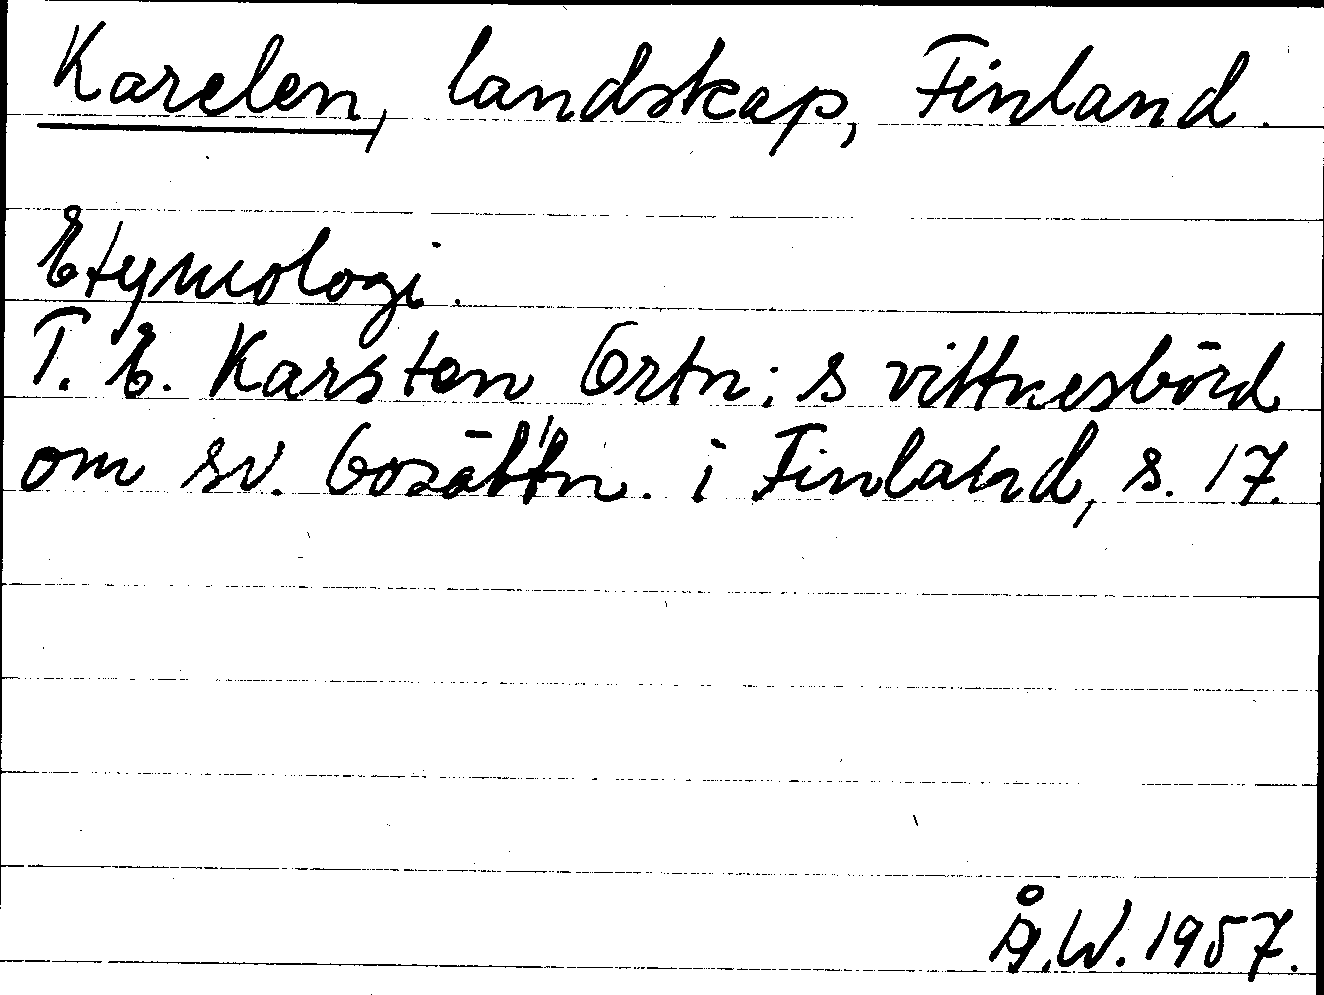 Karelen, landskap, Finland.
Etymologi.
T. E. Karsten Ortn:s vittnesbörd
om sv. bosättn. i Finland, s. 17.
Å.W. 1957.